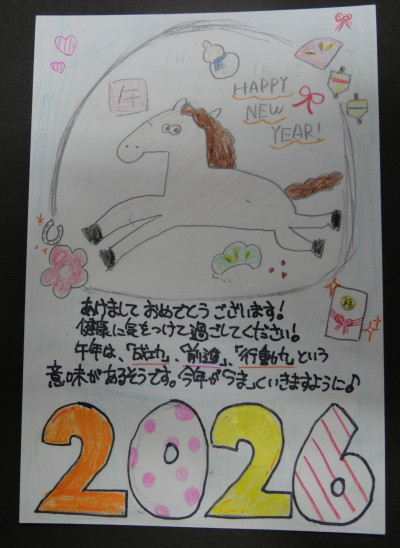 午
HAPPY
NEW
YEAR!
あけまして おめでとう ございます!
健康に気をつけて過ごしてください!
午年は、「成功」、「前進」、「行動力」という
意味があるそうです。今年が「うま」くいきますように♪
2026